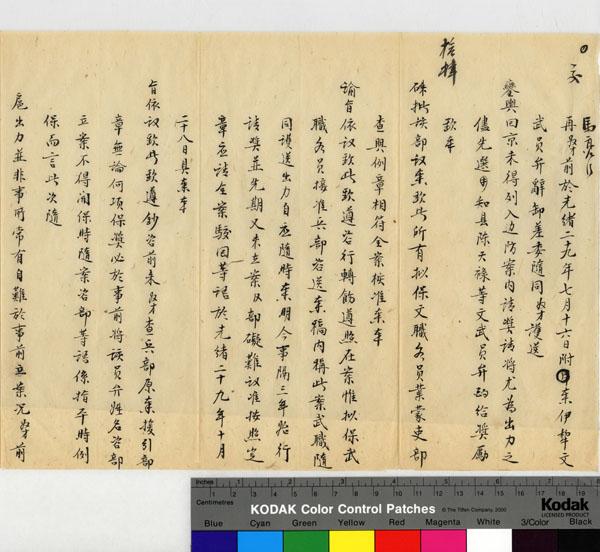 交
馬亮片
再奴才前於光緒二十九年七月十六日附 奏伊犂文
武員弁辭卸差委隨同奴才護送
鑾輿回京未得列入邊防案內請奬請將尤為出力之
儘先選用知縣陳天祿等文武員弁酌給奬勵
欽奉
硃批該部議奏欽此所有擬保文職各員業蒙吏部
查與例章相符全案核准奏奉
諭旨依議欽此欽遵咨行轉飭遵照在案惟擬保武
職各員接准兵部咨送奏稿內稱此案武職隨
同護送出力自應隨時奏明今事隔三年始行
請奬並先期又未立案臣部礙難議准按照定
章應請全案駁回等語於光緒二十九年十月
二十八日具奏奉
旨依議欽此欽遵鈔咨前來奴才查兵部原奏援引部
章無論何項保奬必於事前將該員弁姓名咨部
立案不得開保時隨案咨部等語係指平時例
保而言此次隨
扈出力並非事所常有自難於事前立案況奴才前
Inches
Centimetres
KODAK Color Control Patches
© The Tiffen Company, 2000
Kodak
LICENSED PRODUCT
Blue Cyan Green Yellow Red Magenta White 3/Color Black